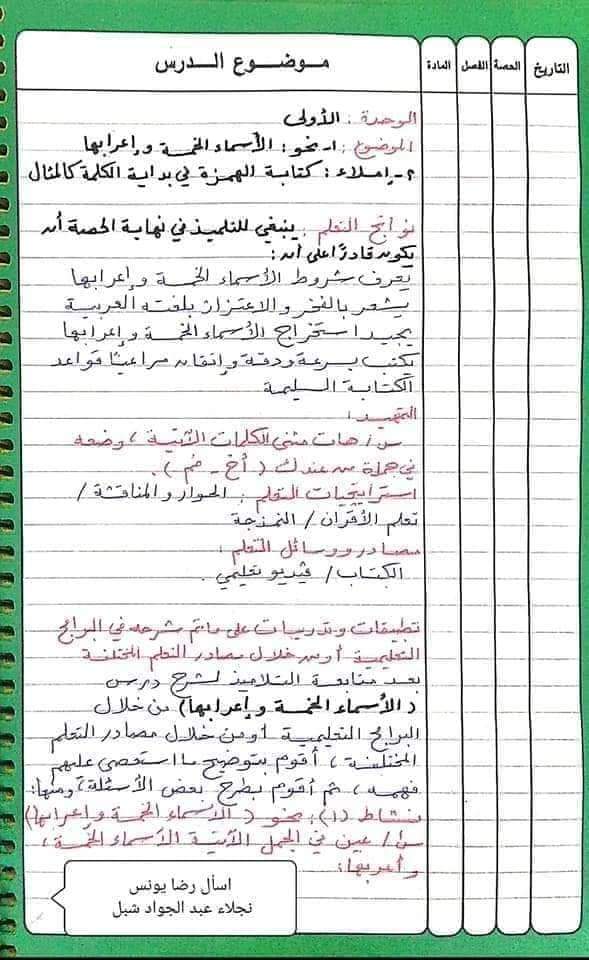 التاريخ
الحصة
الفصل
المادة
موضوع الدرس
الوحدة : الأولى
الموضوع : ١- نحو : الأسماء الخمسة وإعرابها
٢- إملاء : كتابة الهمزة في بداية الكلمة كالمثال
نواتج التعلم : ينبغي للتلميذ في نهاية الحصة أن
يكون قادرًا على أن :
يعرف شروط الأسماء الخمسة وإعرابها
يشعر بالفخر والاعتزاز بلغته العربية
يجيد استخراج الأسماء الخمسة وإعرابها
يكتب بسرعة ودقة وإتقان مراعيًا قواعد
الكتابة السليمة
التمهيد :
س / هات مثنى الكلمات الآتية ، وضعه
في جملة من عندك ( أخ - فم ) .
استراتيجيات التعلم : الحوار والمناقشة /
تعلم الأقران / النمذجة
مصادر ووسائل التعلم :
الكتاب / فيديو تعليمي .
تطبيقات وتدريبات على ما تم شرحه في البرامج
التعليمية أو من خلال مصادر التعلم المختلفة
بعد متابعة التلاميذ لشرح درس
( الأسماء الخمسة وإعرابها ) من خلال
البرامج التعليمية أو من خلال مصادر التعلم
المختلفة ، أقوم بتوضيح ما استعصى عليهم
فهمه ، ثم أقوم بطرح بعض الأسئلة ، ومنها :
نشاط (١) : نحو ( الأسماء الخمسة وإعرابها )
س١ / عين في الجمل الآتية الأسماء الخمسة ،
وأعربها :
اسأل رضا يونس
نجلاء عبد الجواد شبل